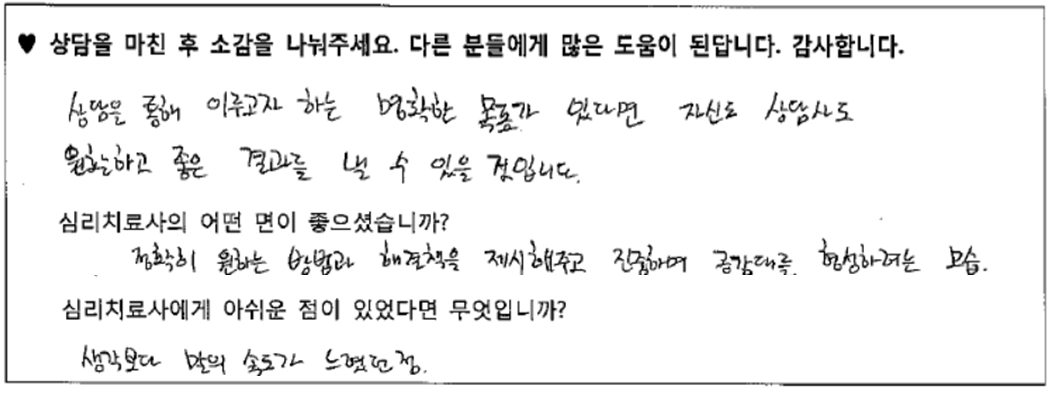 ♥ 상담을 마친 후 소감을 나눠주세요. 다른 분들에게 많은 도움이 된답니다. 감사합니다.
상담을 통해 이루고자 하는 명확한 목표가 있다면 자신도 상담사도
원활하고 좋은 결과를 낼 수 있을 것입니다.
심리치료사의 어떤 면이 좋으셨습니까?
정확히 원하는 방법과 해결책을 제시해주고 진중하며 공감대를 형성하려는 모습.
심리치료사에게 아쉬운 점이 있었다면 무엇입니까?
생각보다 말의 속도가 느렸던 점.